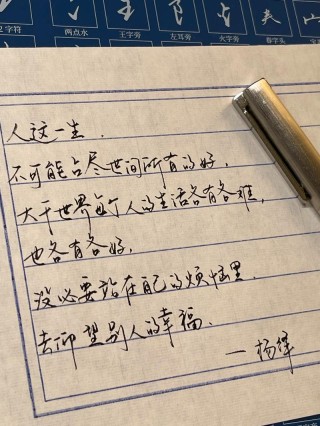 两点水
王字旁
左耳旁
火字旁
人这一生.
不可能占尽世间所有的好,
大千世界每个人的生活各有各难,
也各有各好,
没必要站在自己的烦恼里.
去仰望别人的幸福.
—杨绛